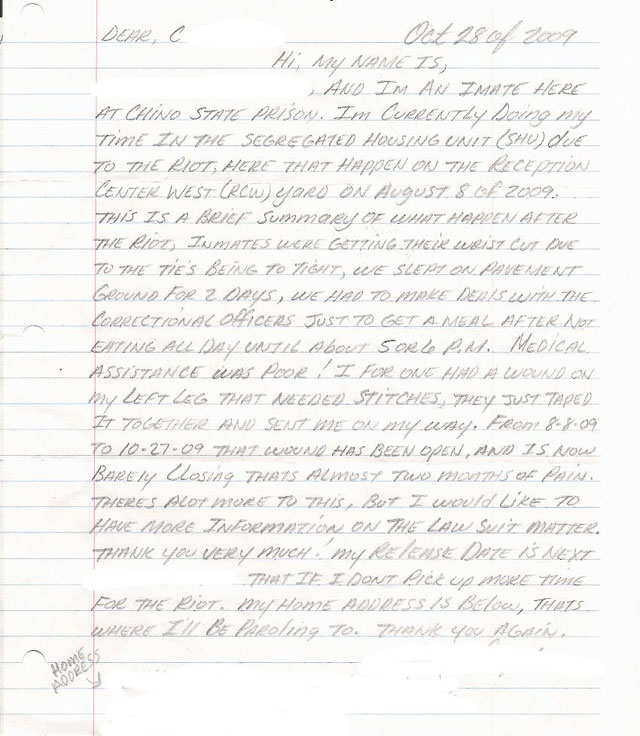 DEAR, C
Oct 28 of 2009
Hi, MY NAME IS,
, AND IM AN IMATE HERE
AT CHINO STATE PRISON. IM CURRENTLY DOING MY
TIME IN THE SEGREGATED HOUSING UNIT (SHU) due
TO THE RIOT, HERE THAT HAPPEN ON THE RECEPTION
CENTER WEST (RCW) YARD ON AUGUST 8 of 2009.
THIS IS A BRIEF SUMMARY OF WHAT HAPPEN AFTER
THE RIOT, INMATES WERE GETTING THEIR WRIST CUT DUE
TO THE TIE'S BEING TO TIGHT, WE SLEPT ON PAVEMENT
GROUND FOR 2 DAYS, WE HAD TO MAKE DEALS WITH THE
CORRECTIONAL OFFICERS JUST TO GET A MEAL AFTER NOT
EATING ALL DAY UNTIL ABOUT 5 OR 6 P.M. MEDICAL
ASSISTANCE WAS POOR! I FOR ONE HAD A WOUND ON
MY LEFT LEG THAT NEEDED STITCHES, THEY JUST TAPED
IT TOGETHER AND SENT ME ON MY WAY. FROM 8-8-09
TO 10-27-09 THAT WOUND HAS BEEN OPEN, AND IS NOW
BARELY CLOSING THATS ALMOST TWO MONTHS OF PAIN.
THERES ALOT MORE TO THIS, BUT I WOULD LIKE TO
HAVE MORE INFORMATION ON THE LAW SUIT MATTER.
THANK YOU VERY MUCH! MY RELEASE DATE IS NEXT
THAT IF I DONT PICK UP MORE TIME
FOR THE RIOT. MY HOME ADDRESS IS BELOW, THATS
WHERE I'LL BE PAROLING TO. THANK YOU AGAIN.
HOME
ADDRESS